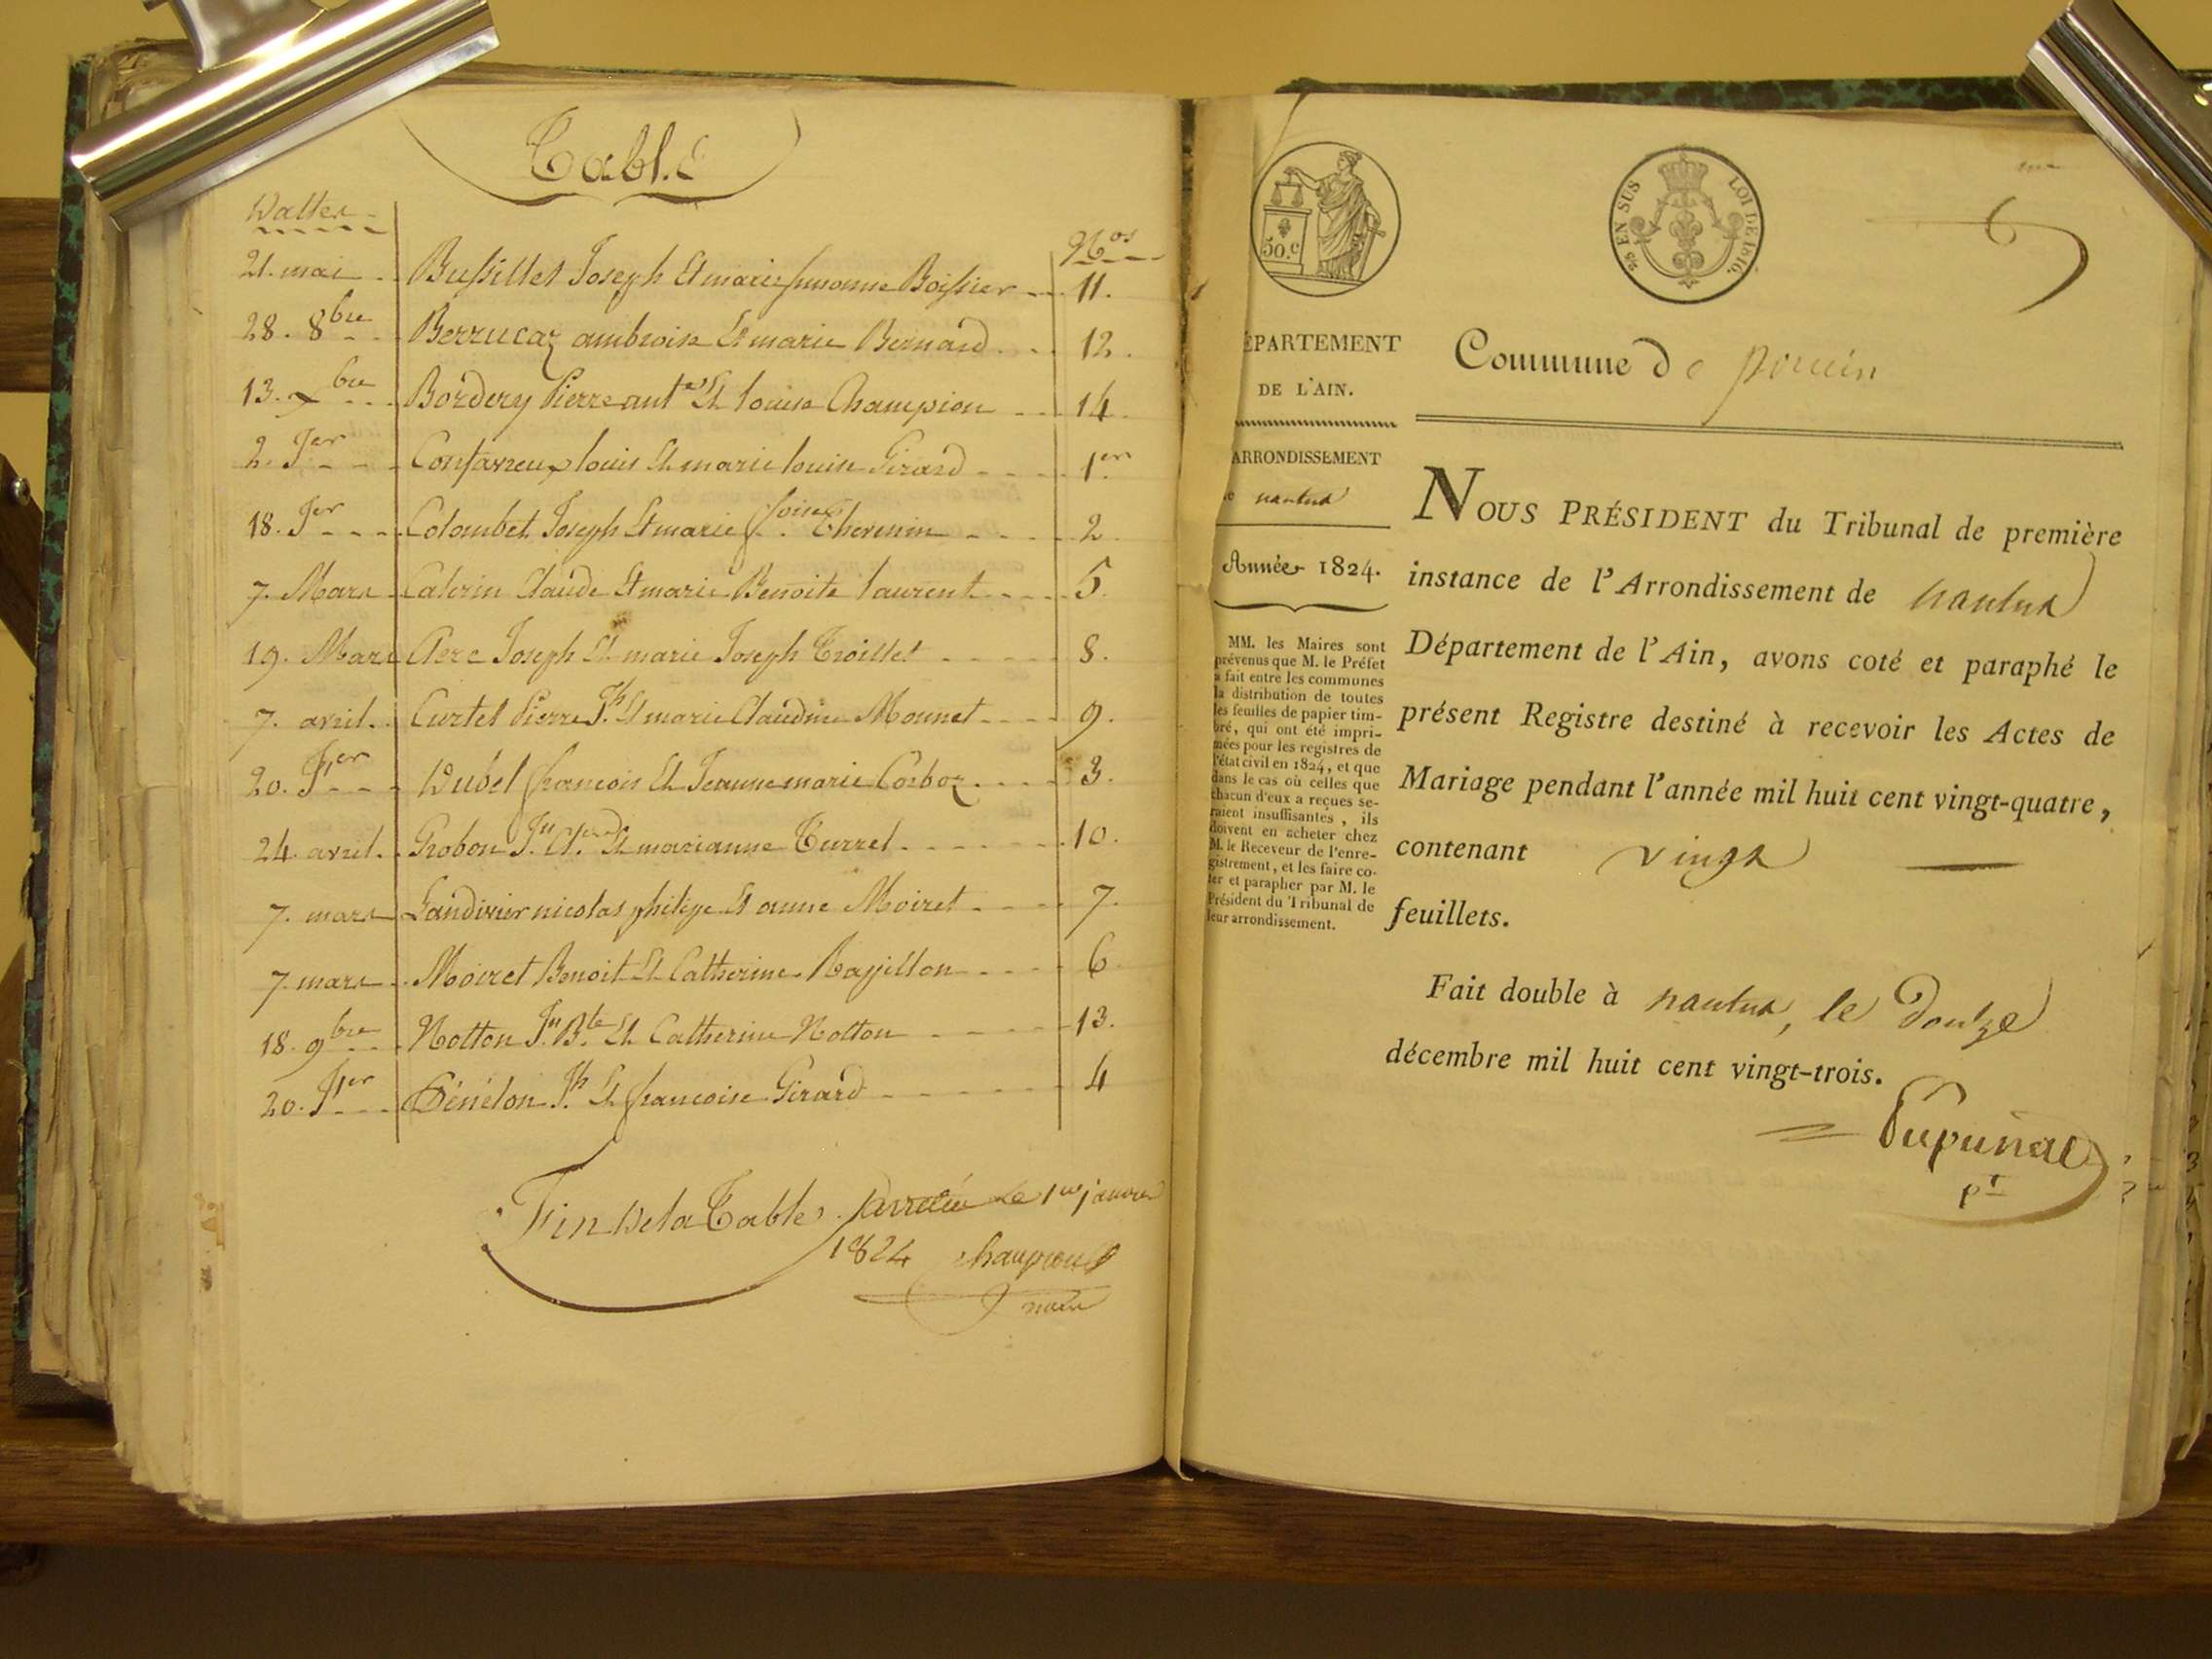 Table
Dattes Nos
21. mai Bussillet Joseph Et marie simonne Boissier 11.
28. 8bre Berrucaz ambroise Et marie Bernard 12.
13. xbre Bordery Pierre ant.e Et louise Champion 14.
2. Jer Confavreux louis Et marie louise Girard 1er
18. Jer Colombet Joseph Et marie fsoise Thevenin 2.
7. Mars Calvin Claude Et marie Benoite laurent 5.
19. Mars Clerc Joseph Et marie Joseph Troillet 8.
7. avril Curtet Pierre Jh Et marie Claudine Monnet 9.
20. Fer Dubel francois Et Jeanne marie Corboz 3.
24. avril Grobon Jn Cl. Et marianne Turrel 10.
7. mars Landivier nicolas philipe Et anne Moiret 7.
7. mars Moiret Benoit Et Catherine Rapillon 6.
18. 9bre Notton Jn Bte Et Catherine Notton 13.
20. Fer Pénélon Jh Et francoise Girard 4
Fin De la Table. arretée Le 1er janvier
1824
maire
50.c
2/5 EN SUS LOI DE 1816.
6
ÉPARTEMENT
DE L'AIN.
ARRONDISSEMENT
nantua
Année 1824.
MM. les Maires sont
prévenus que M. le Préfet
a fait entre les communes
la distribution de toutes
les feuilles de papier tim-
bré, qui ont été impri-
mées pour les registres de
l'état civil en 1824, et que
dans le cas où celles que
chacun d'eux a reçues se-
raient insuffisantes, ils
doivent en acheter chez
M. le Receveur de l'enre-
gistrement, et les faire co-
ter et parapher par M. le
Président du Tribunal de
leur arrondissement.
Commune de poncin
NOUS PRÉSIDENT du Tribunal de première
instance de l'Arrondissement de nantua
Département de l'Ain, avons coté et paraphé le
présent Registre destiné à recevoir les Actes de
Mariage pendant l'année mil huit cent vingt-quatre,
contenant vingt
feuillets.
Fait double à nantua, le Douze
décembre mil huit cent vingt-trois.
pt